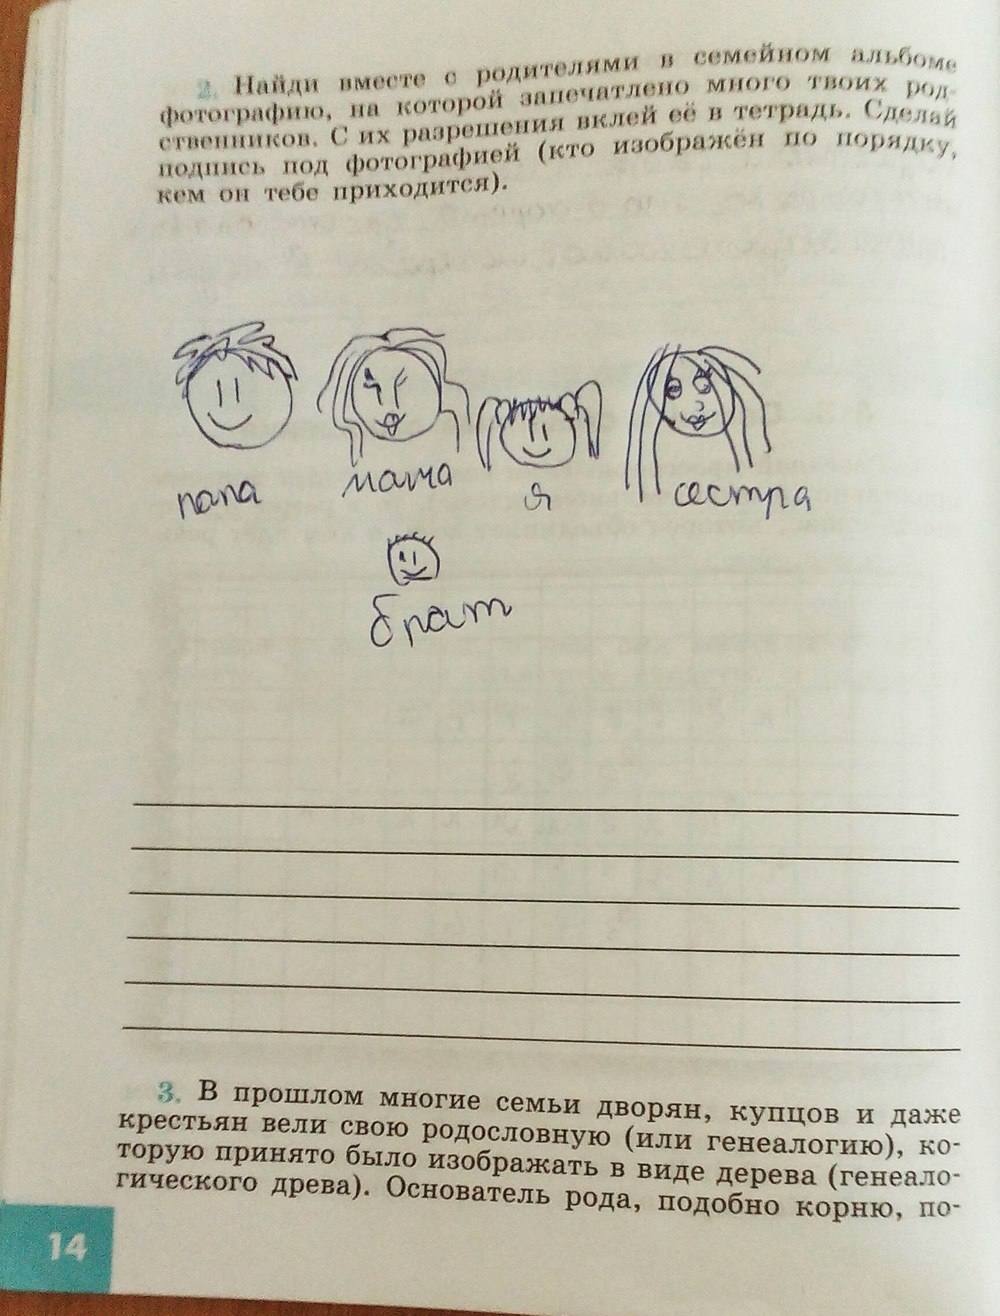 2. Найди вместе с родителями в семейном альбоме
фотографию, на которой запечатлено много твоих род-
ственников. С их разрешения вклей её в тетрадь. Сделай
подпись под фотографией (кто изображён по порядку,
кем он тебе приходится).
папа мама я сестра
брат
3. В прошлом многие семьи дворян, купцов и даже
крестьян вели свою родословную (или генеалогию), ко-
торую принято было изображать в виде дерева (генеало-
гического древа). Основатель рода, подобно корню, по-
14